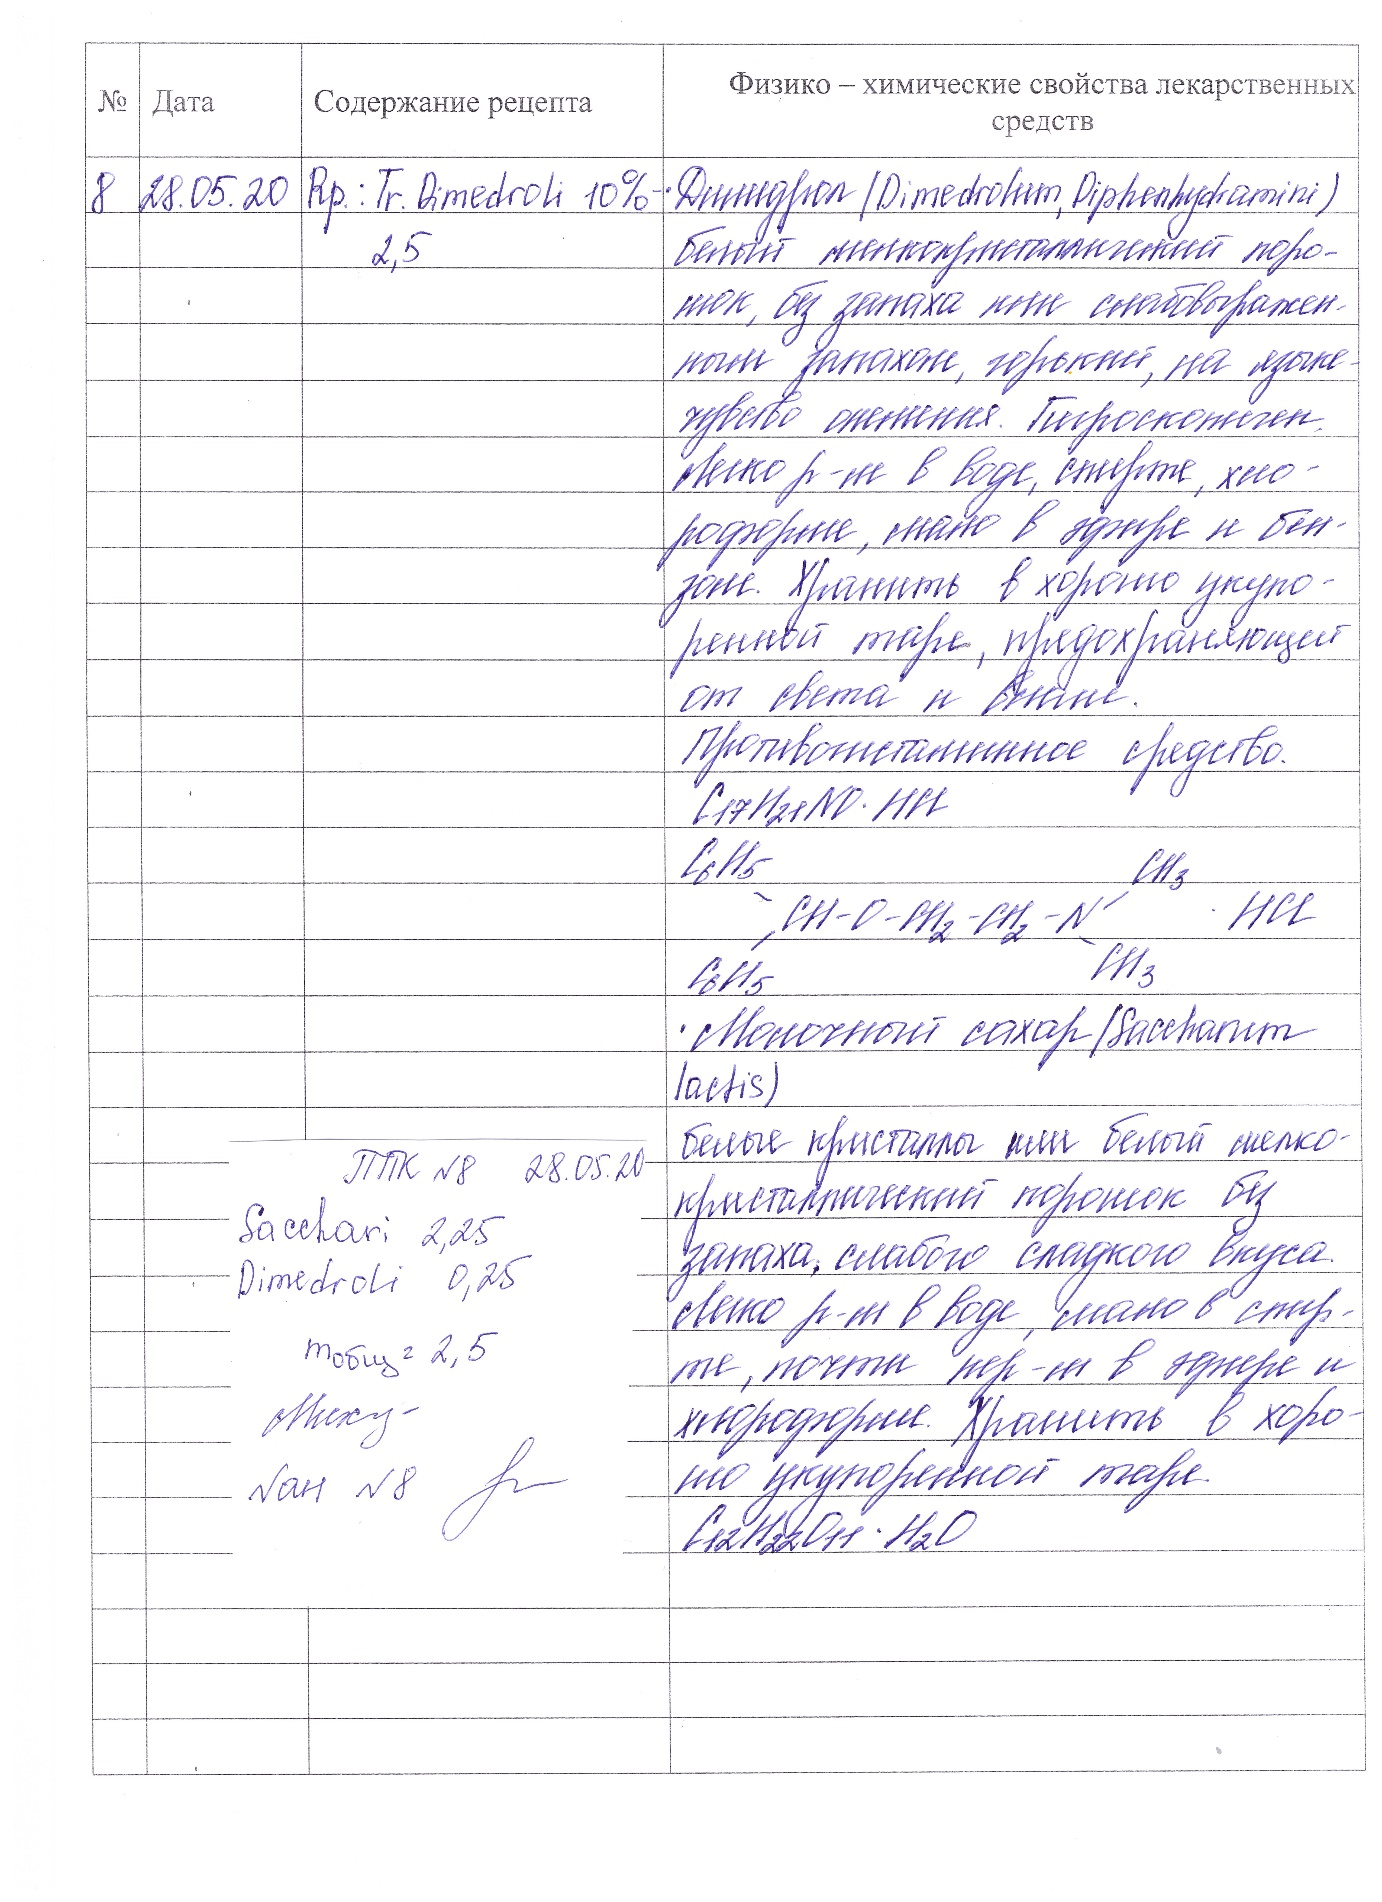 № Дата Содержание рецепта Физико – химические свойства лекарственных
средств
8 28.05.20 Rp.: Tr. Dimedroli 10%-
2,5
·Димедрол (Dimedrolum, Diphenhydramini)
белый мелкокристаллический поро-
шок, без запаха или слабовыражен-
ным запахом, горький, на языке-
чувство онемения. Гигроскопичен.
Легко р-м в воде, спирте, хло-
роформе, мало в эфире и бен-
золе. Хранить в хорошо укупо-
ренной таре, предохраняющей
от света и влаги.
Противогистаминное средство.
C17H21NO·HCl
C6H5 CH3
CH-O-CH2-CH2-N · HCl
C6H5 CH3
·Молочный сахар (Saccharum
lactis)
белые кристаллы или белый мелко-
кристаллический порошок без
запаха, слабого сладкого вкуса.
Легко р-м в воде, мало в спир-
те, почти нер-м в эфире и
хлороформе. Хранить в хоро-
шо укупоренной таре.
C12H22O11·H2O
ППК №8 28.05.20
Sacchari 2,25
Dimedroli 0,25
mобщ= 2,5
№ан №8